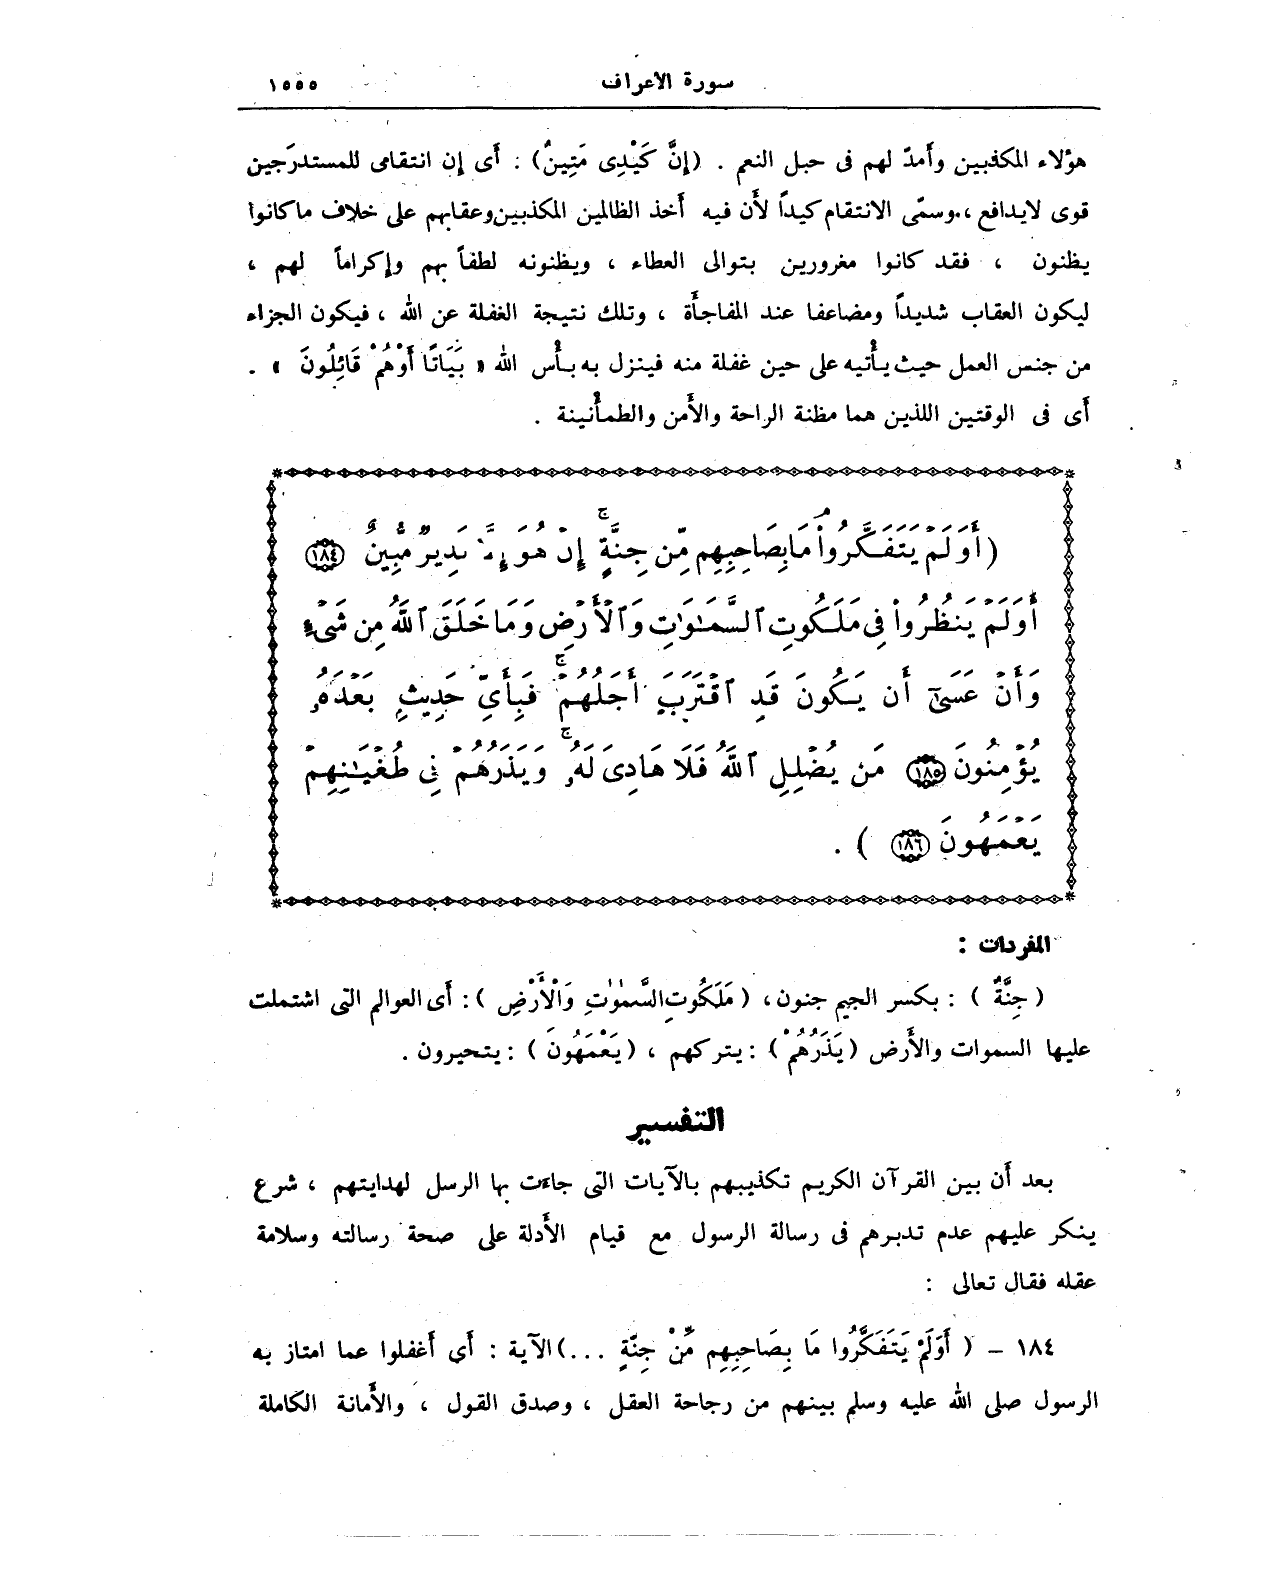 سورة الأعراف ١٥٥٥
هؤلاء المكذبين وأمدّ لهم فى حبل النعم . (إِنَّ كَيْدِى مَتِينٌ) : أَى إن انتقامى للمستدرَجين
قوى لايدافع ،.وسمّى الانتقام كيداً لأَن فيه أخذ الظالمين المكذبين وعقابهم على خلاف ماكانوا
يظنون ، فقد كانوا مغرورين بتوالى العطاء ، ويظنونه لطفاً بهم وإكراماً لهم ،
ليكون العقاب شديداً ومضاعفا عند المفاجأَة ، وتلك نتيجة الغفلة عن الله ، فيكون الجزاء
من جنس العمل حيث يأْتيه على حين غفلة منه فينزل به بأْس الله « بَيَاتًا أَوْهُمْ قَائِلُونَ » .
أَى فى الوقتين اللذين هما مظنة الراحة والأَمن والطمأْنينة .
(أَوَلَمْ يَتَفَكَّرُوا۟ مَا بِصَاحِبِهِم مِّن جِنَّةٍ ۚ إِنْ هُوَ إِلَّا نَذِيرٌ مُّبِينٌ ١٨٤
أَوَلَمْ يَنظُرُوا۟ فِى مَلَكُوتِ ٱلسَّمَـٰوَٰتِ وَٱلْأَرْضِ وَمَا خَلَقَ ٱللَّهُ مِن شَىْءٍ
وَأَنْ عَسَىٰٓ أَن يَكُونَ قَدِ ٱقْتَرَبَ أَجَلُهُمْ ۚ فَبِأَىِّ حَدِيثٍۭ بَعْدَهُۥ
يُؤْمِنُونَ ١٨٥ مَن يُضْلِلِ ٱللَّهُ فَلَا هَادِىَ لَهُۥ ۚ وَيَذَرُهُمْ فِى طُغْيَـٰنِهِمْ
يَعْمَهُونَ ١٨٦ ) .
المفردات :
( جِنَّةٌ ) : بكسر الجيم جنون، ( مَلَكُوتِ السَّمٰوٰتِ وَالْأَرْضِ ) : أَى العوالم التى اشتملت
عليها السموات والأَرض (يَذَرُهُمْ) : يتركهم ، (يَعْمَهُونَ) : يتحيرون .
التفسير
بعد أَن بين القرآن الكريم تكذيبهم بالآيات التى جاءت بها الرسل لهدايتهم ، شرع
ينكر عليهم عدم تدبرهم فى رسالة الرسول مع قيام الأَدلة على صحة رسالته وسلامة
عقله فقال تعالى :
١٨٤ – ( أَوَلَمْ يَتَفَكَّرُوا مَا بِصَاحِبِهِم مِّنْ جِنَّةٍ ...) الآية : أَى أَغفلوا عما امتاز به
الرسول صلى الله عليه وسلم بينهم من رجاحة العقل ، وصدق القول ، والأَمانة الكاملة